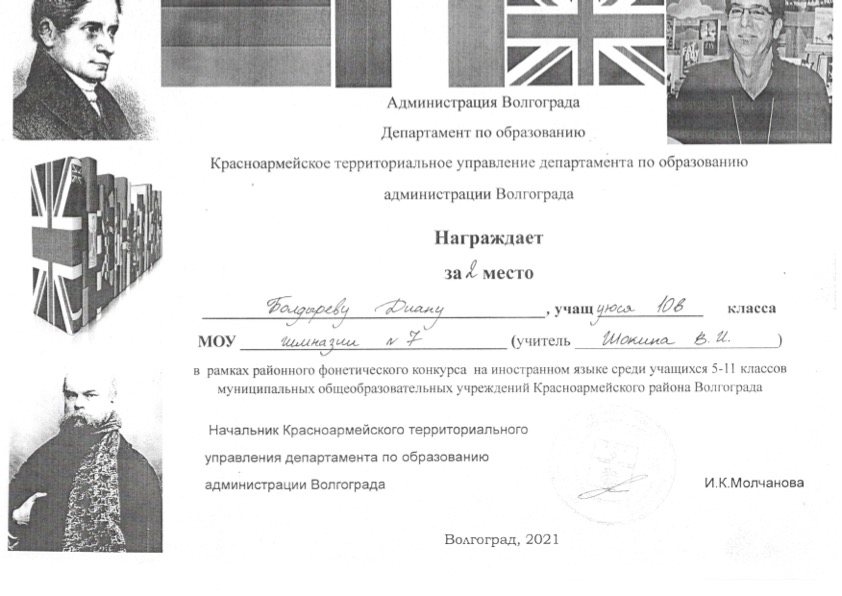 Администрация Волгограда
Департамент по образованию
Красноармейское территориальное управление департамента по образованию
администрации Волгограда
Награждает
за 2 место
Болдыреву Диану, учащуюся 10в класса
МОУ гимназии №7 (учитель Шокина В. И.)
в рамках районного фонетического конкурса на иностранном языке среди учащихся 5-11 классов
муниципальных общеобразовательных учреждений Красноармейского района Волгограда
Начальник Красноармейского территориального
управления департамента по образованию
администрации Волгограда И.К.Молчанова
Волгоград, 2021